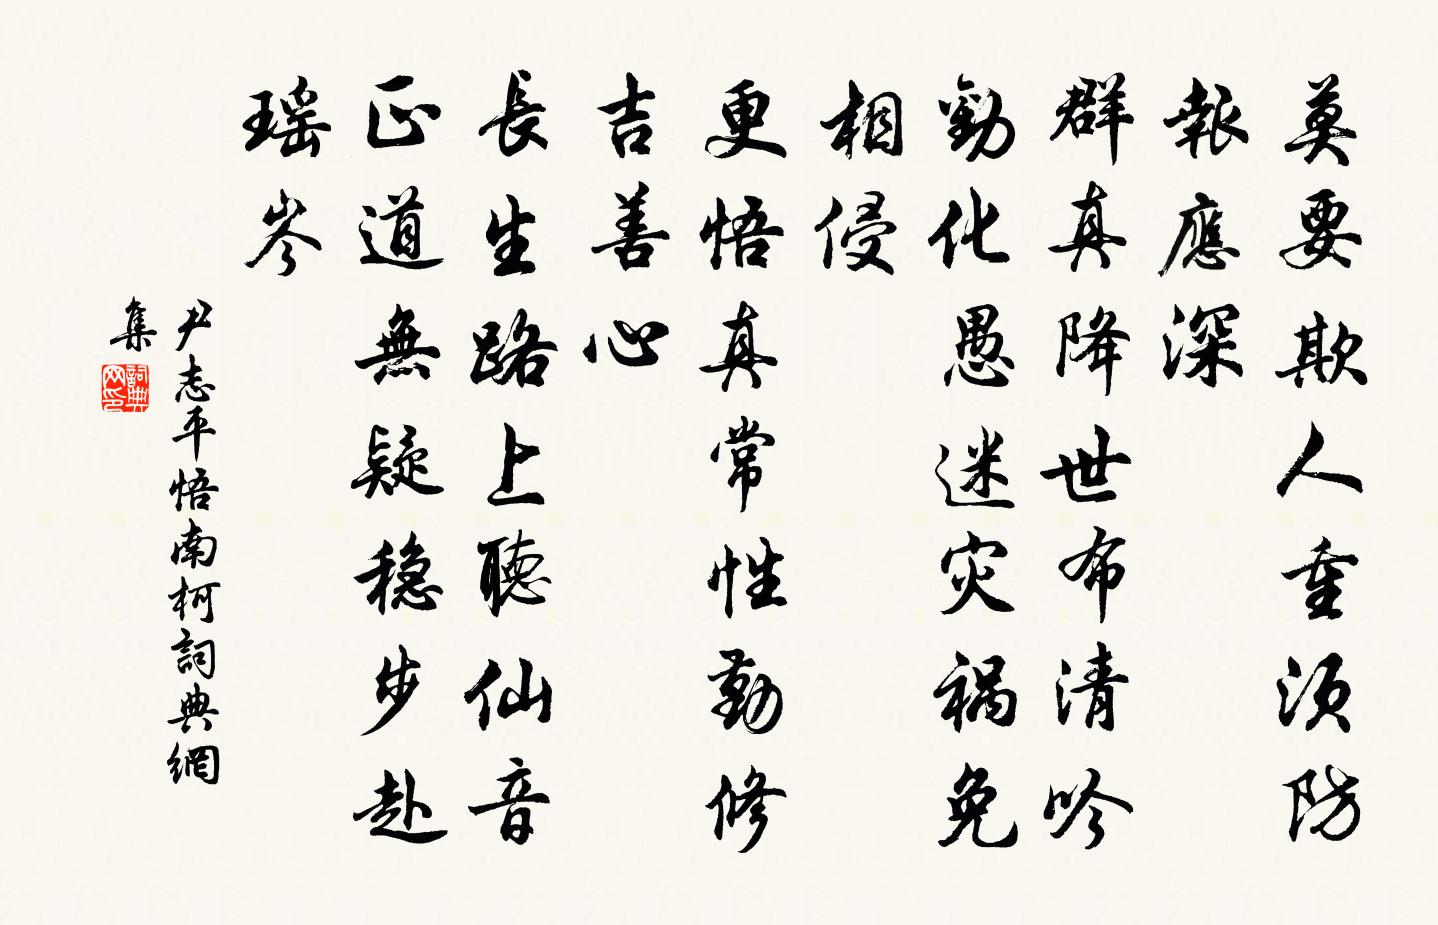 莫要欺人重须防
報應深
群真降世布清吟
勸化愚迷灾祸免
相侵
更悟真常性勤修
吉善心
長生路上聽仙音
正道無疑稳步赴
瑶岑
尹志平悟南柯詞典網
集
詞典网印